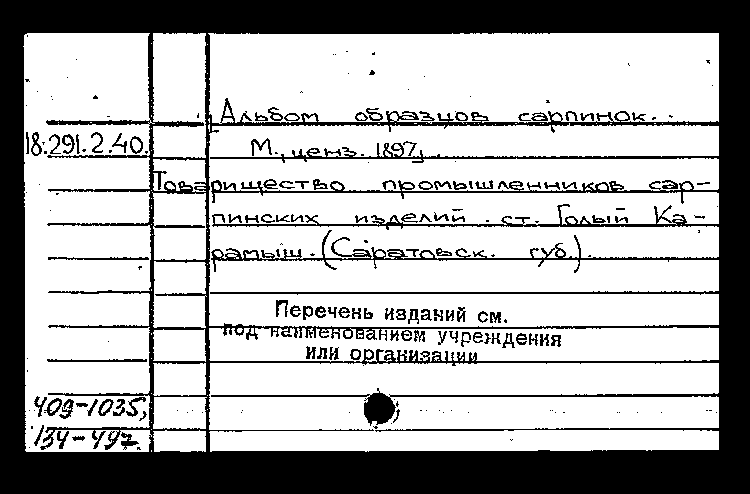 Альбом образцов сарпинок.
18.291.2.40.
М., ценз. 1897,
Товарищество промышленников сар-
пинских изделий. ст. Голый Ка-
рамыш. (Саратовск. губ.).
Перечень изданий см.
под наименованием учреждения
или организации
409-1035,
134-497.